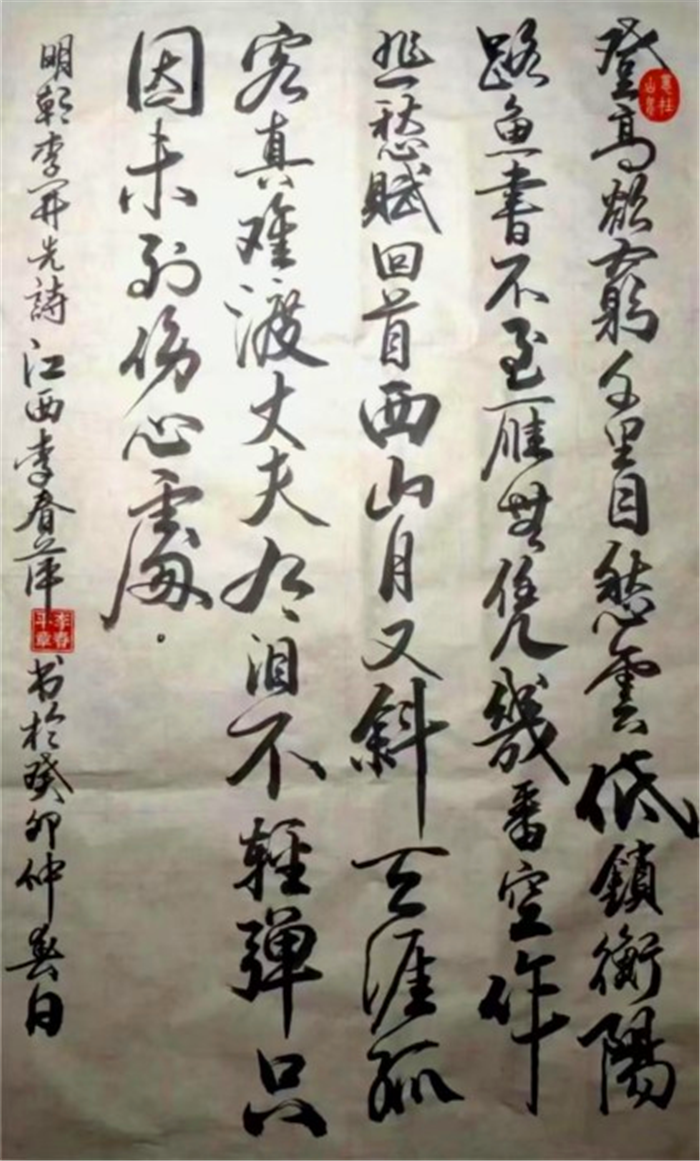 登高欲窮千里目愁雲低鎖衡陽
路魚書不至雁無凭幾番空作
悲愁賦回首西山月又斜天涯孤
客真难渡丈夫有泪不輕彈只
因未到傷心處。
明朝李开先詩 江西李春萍 书於癸卯仲春日